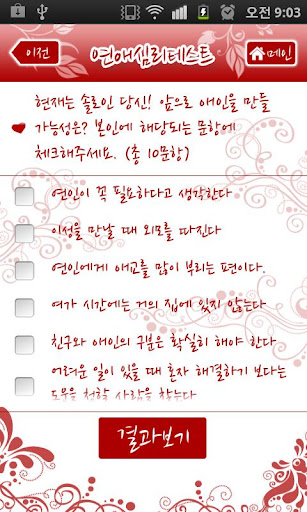 오전 9:03
이전
연애심리테스트
메인
현재는 솔로인 당신! 앞으로 애인을 만들
가능성은? 본인에 해당되는 문항에
체크해주세요. (총 10문항)
연인이 꼭 필요하다고 생각한다
이성을 만날 때 외모를 따진다
연인에게 애교를 많이 부리는 편이다.
여가 시간에는 거의 집에 있지 않는다
친구와 애인의 구분은 확실히 해야 한다
어려운 일이 있을 때 혼자 해결하기 보다는
도움을 청할 사람을 찾는다
결과보기